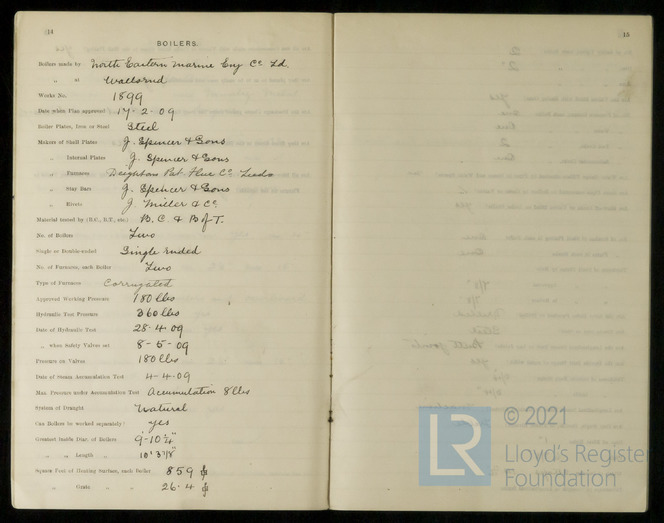 14
BOILERS.
Boilers made by North Eastern Marine Eng Co Ld.
„ at Wallsend
Works No. 1899
Date when Plan approved 17-2-09
Boiler Plates, Iron or Steel Steel
Makers of Shell Plates J. Spencer & Sons
„ Internal Plates J. Spencer & Sons
„ Furnaces Deighton Pat. Flue Co Leeds
„ Stay Bars J. Spencer & Sons
„ Rivets J. Miller & Co
Material tested by (B.C., B.T., etc.) B.C. & B of T.
No. of Boilers Two
Single or Double-ended Single ended
No. of Furnaces, each Boiler Two
Type of Furnaces Corrugated
Approved Working Pressure 180 lbs
Hydraulic Test Pressure 360 lbs
Date of Hydraulic Test 28-4-09
„ when Safety Valves set 8-5-09
Pressure on Valves 180 lbs
Date of Steam Accumulation Test 4-4-09
Max. Pressure under Accumulation Test Accumulation 8 lbs
System of Draught Natural
Can Boilers be worked separately? yes
Greatest Inside Diar. of Boilers 9'-10 1/4"
„ „ Length 10' 3 7/8"
Square Feet of Heating Surface, each Boiler 859
„ Grate „ „ 26.4
15
© 2021
LR
Lloyd's Register
Foundation